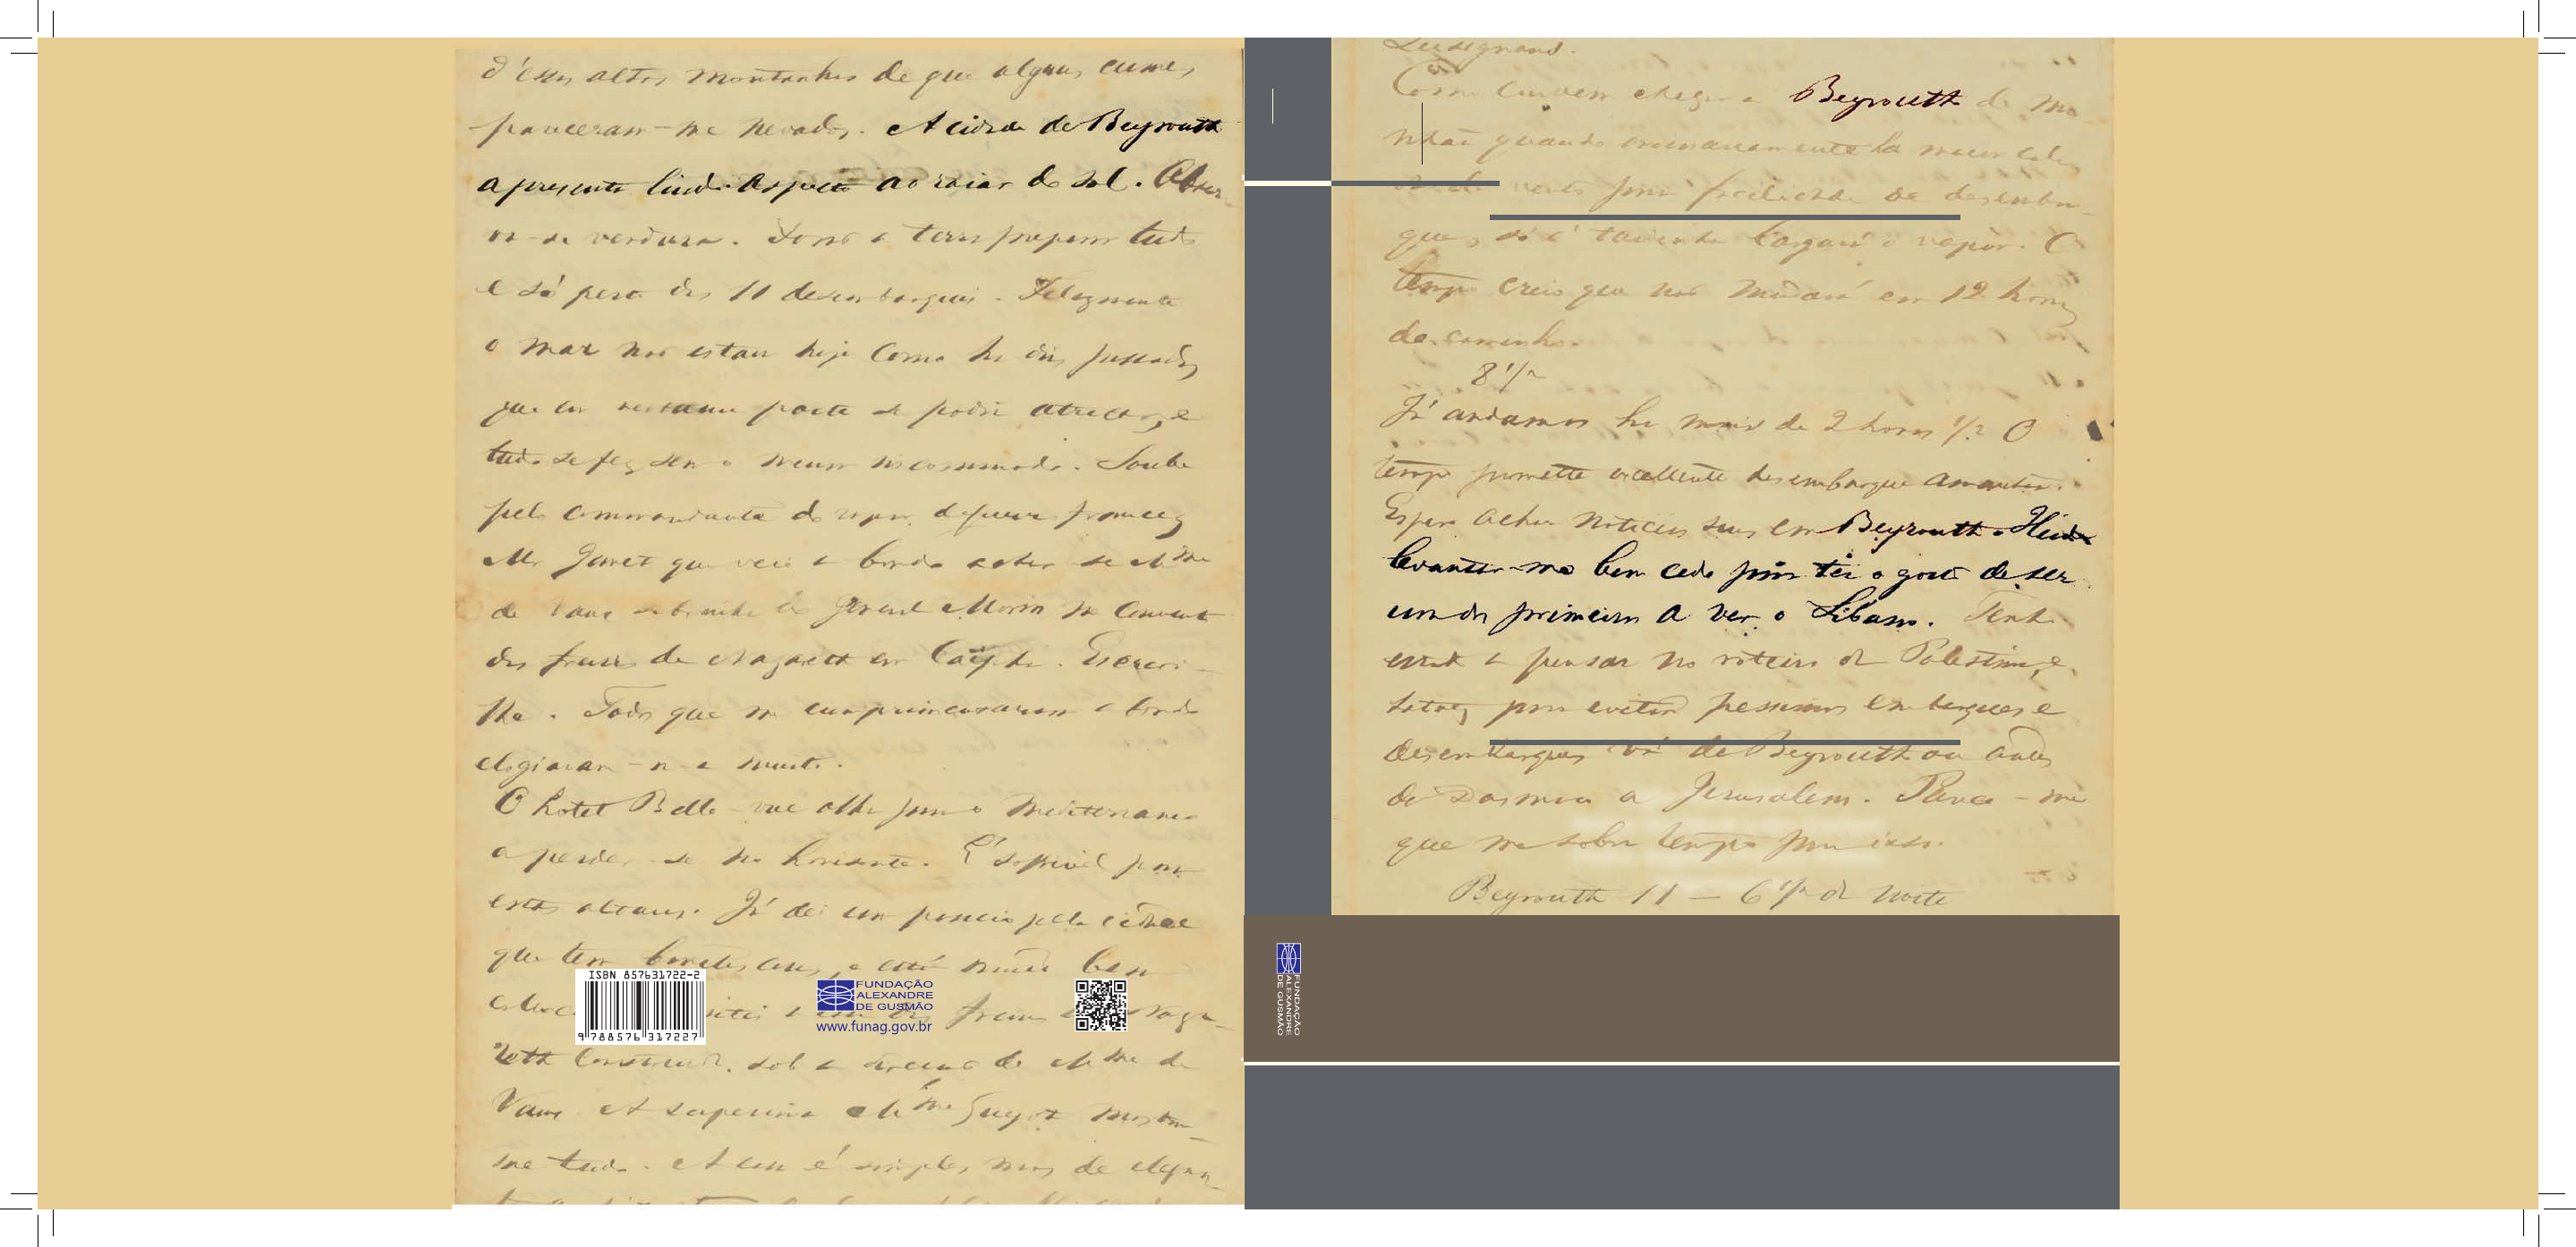 d'essas altas montanhas de que alguns cumes
pareceram-me nevados. A cidade de Beyrouth
apresenta lindo aspecto ao raiar do sol.
de verdura. tudo
e só perto das 11 desembarquei. Felizmente
o mar não estava hoje como ha dias passados
que em nenhuma parte se podia atracar, e
tudo se fez sem o menor incommodo. Soube
pelo commandante do vapor de guerra francez
Mr. que veio a bordo
de
de Nazareth em Caïpha. Escrevi-
lhe. Todos que me cumprimentaram a bordo
elogiaram-n-a muito.
O hotel Belle-vue olha para o Mediterraneo
a perder-se no horisonte. É soffrivel para
estas alturas. Já dei um passeio pela cidade
que tem bonitas casas, e está muito bem
Naza-
reth construida sob a direcção de Mme de
A superiora Mme mostrou-
me tudo. A casa é simples mas de elegan-
ISBN 857631722-2
9 788576 317227
FUNDAÇÃO
ALEXANDRE
DE GUSMÃO
www.funag.gov.br
FUNDAÇÃO
ALEXANDRE
DE GUSMÃO
Lusignans.
Como convem chegar a Beyrouth de ma-
nhãa quando ordinariamente ha menor
de vento para facilidade de desemba-
que, só á tardinha largará o vapor. O
tempo creio que não mudará em 12 horas
de caminho.
8 1/2
Já andamos ha mais de 2 horas 1/2 O
tempo promette excellente desembarque amanhãa.
Espero achar noticias suas em Beyrouth. Heide
levantar-me bem cedo para ter o gosto de ser
um dos primeiros a ver o Libano. Tenho
estado a pensar no roteiro da Palestina, e
talvez para evitar pessimos embarques e
desembarques vá de Beyrouth ou antes
de Damasco a Jerusalem. Parece-me
que me sobra tempo para isso.
Beyrouth 11 — 6 1/2 da noite